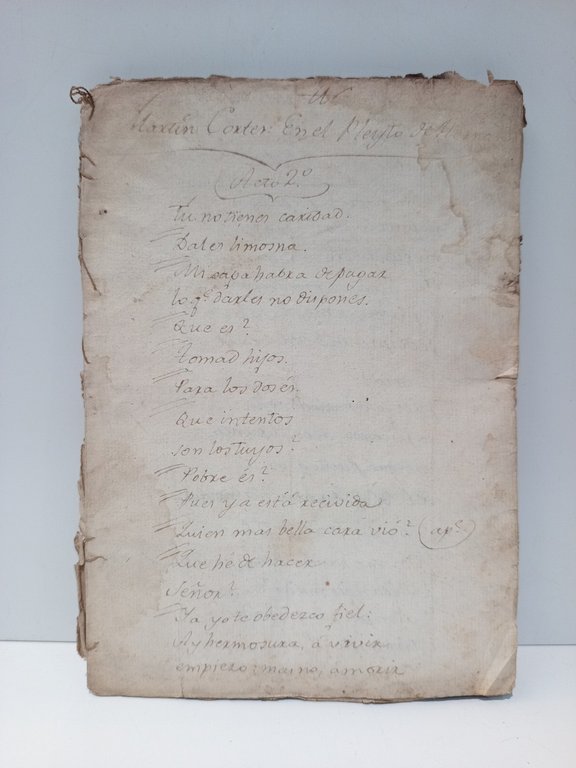 Martin Cortes En el Pleyto de
Acto 2.º
Tu no tienes caridad.
Dales limosna.
Mi capa habra de pagar
lo q.e darles no dispones.
Que es?
Tomad hijos.
Para los dos és.
Que intentos
son los tuyos?
Pobre és?
Pues ya está recivida
Quien mas bella cara vió? (ap.e
Que hé de hacer
Señor?
Ya yo te obedezco fiel:
Ay hermosura, á vivir
empiezo; mas no, á morir